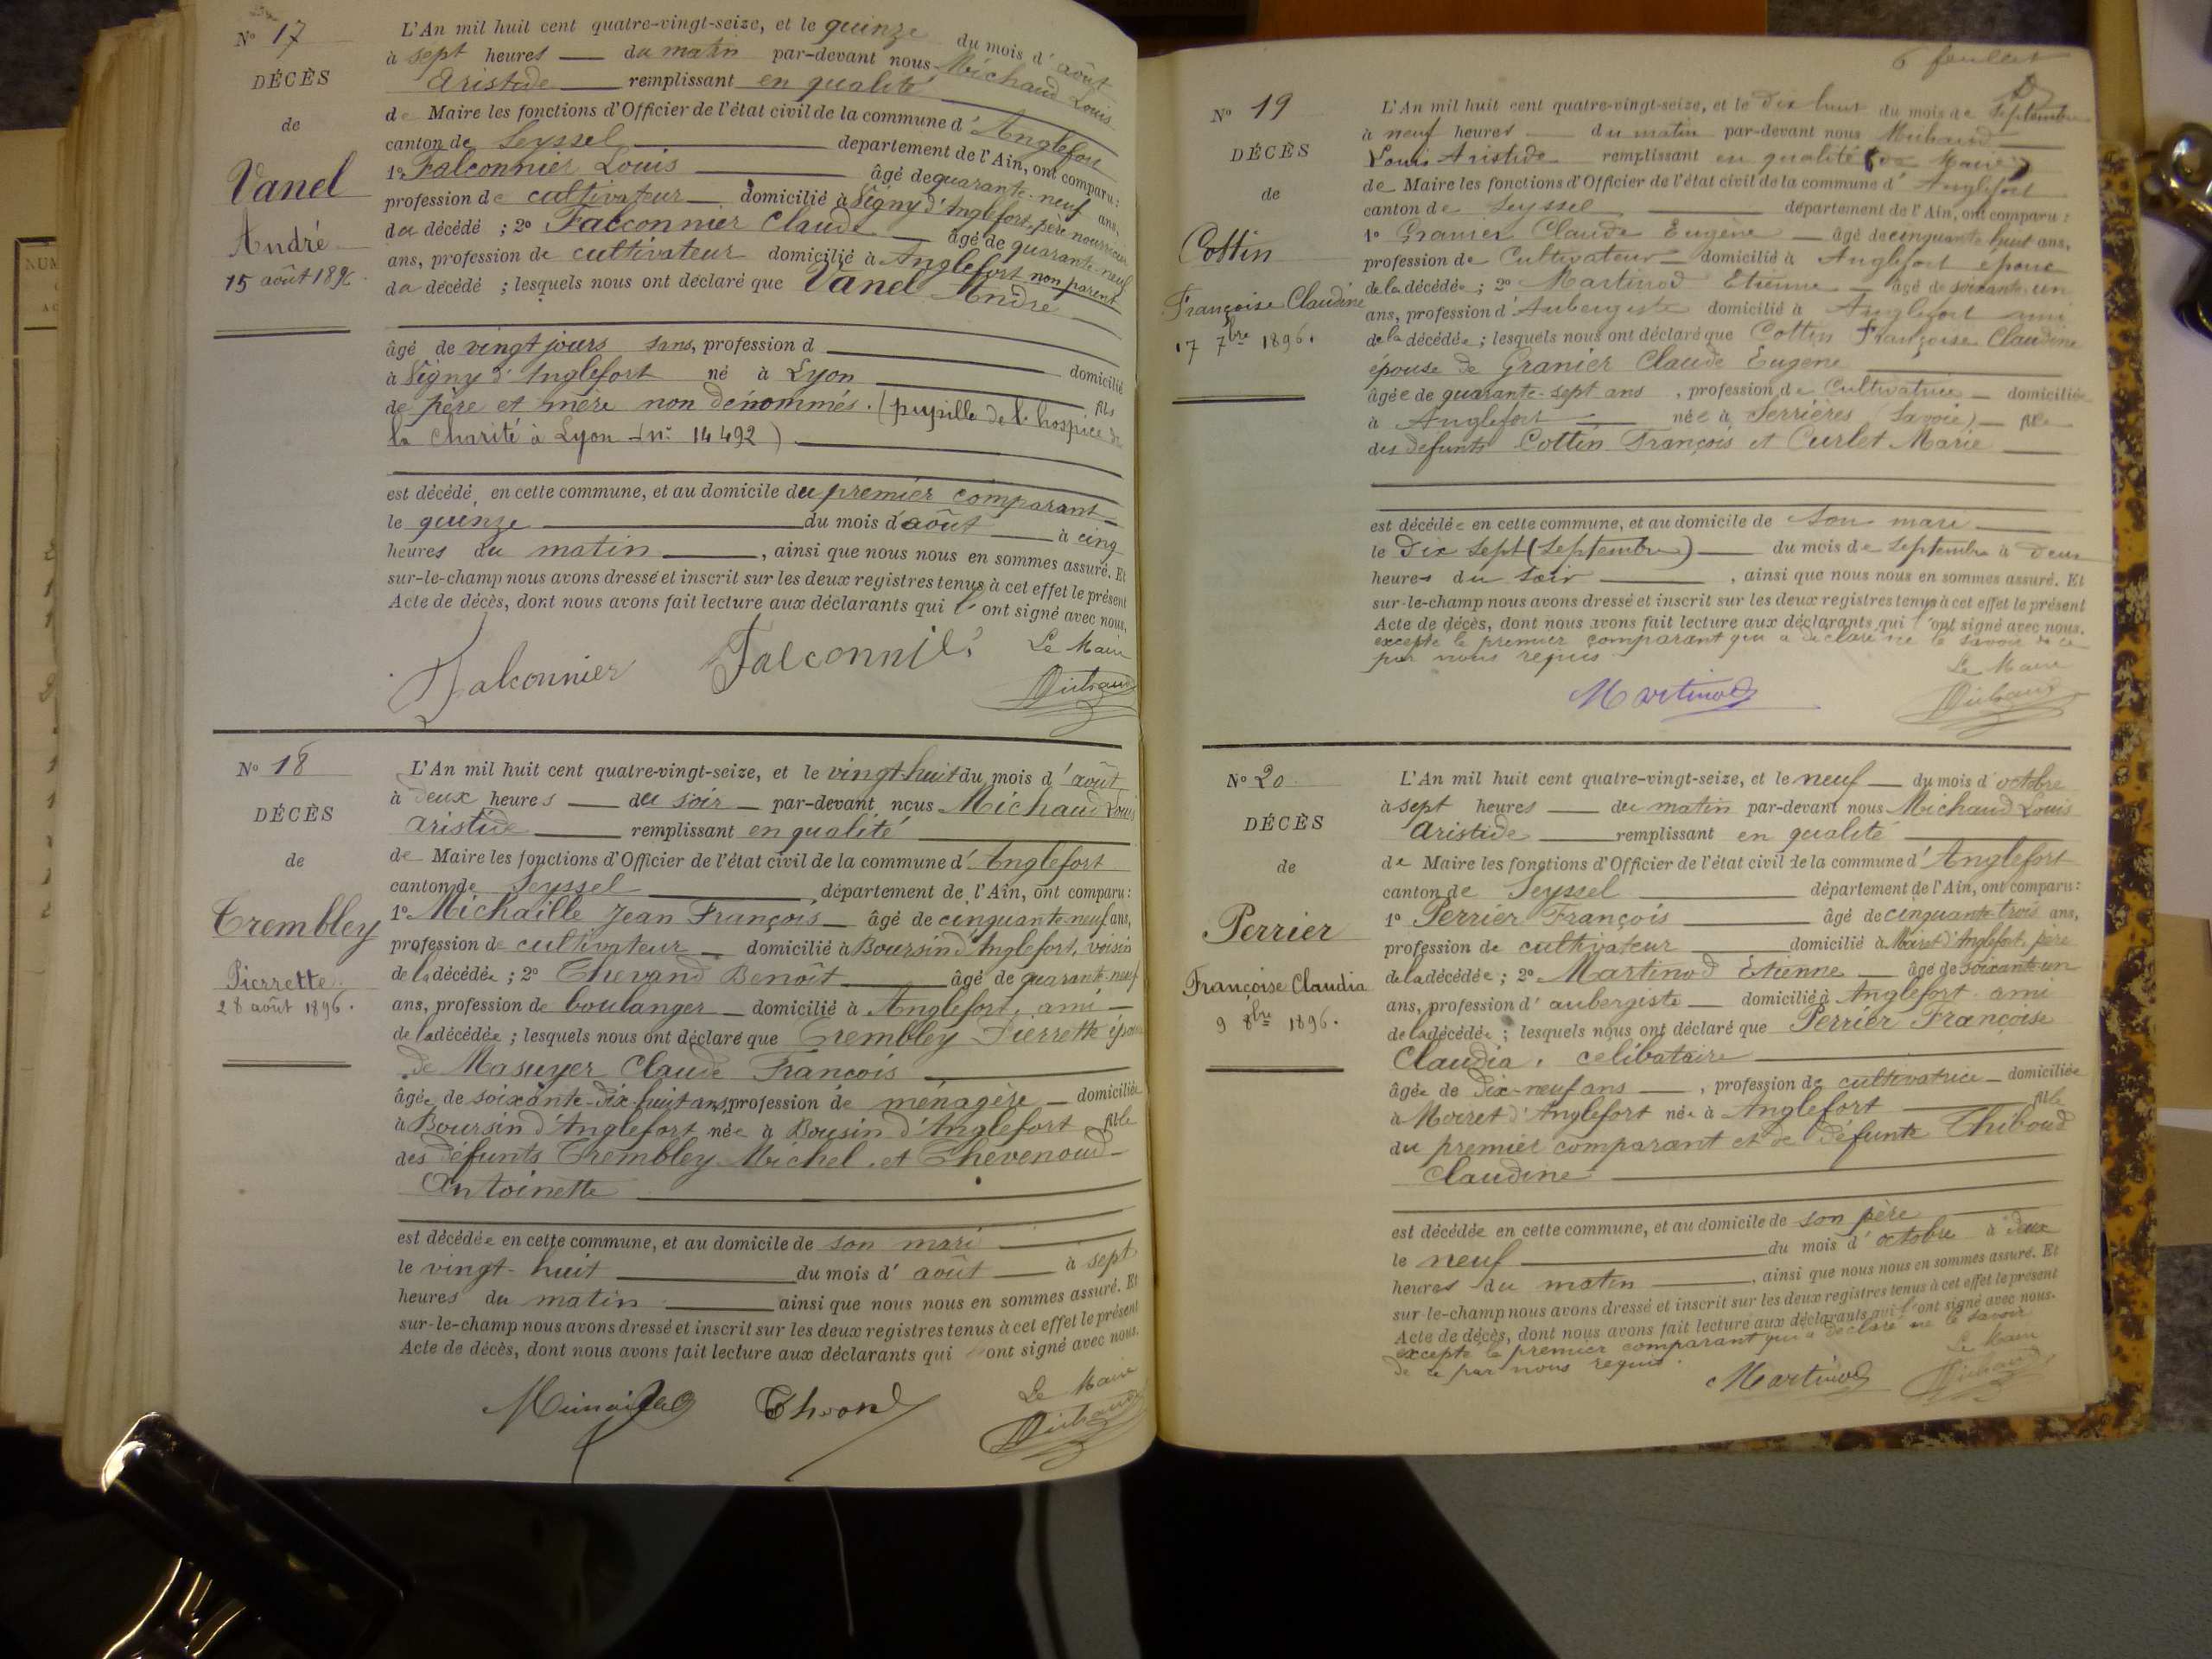 N° 17
DÉCÈS
de
Vanel
André
15 août 1896
L'An mil huit cent quatre-vingt-seize, et le quinze du mois d'août
à sept heures du matin par-devant nous Michaud Louis
Aristide remplissant en qualité
de Maire les fonctions d'Officier de l'état civil de la commune d'Anglefort
canton de Seyssel département de l'Ain, ont comparu :
1° Falconnier Louis âgé de quarante-neuf ans,
profession de cultivateur domicilié à Signy d'Anglefort, père nourricier
du décédé ; 2° Falconnier Claude âgé de quarante-neuf
ans, profession de cultivateur domicilié à Anglefort non parent
du décédé ; lesquels nous ont déclaré que Vanel André
âgé de vingt jours sans, profession d domicilié
à Signy d'Anglefort né à Lyon fils
de père et mère non dénommés. (pupille de l'hospice de
la charité à Lyon (n° 14492)
est décédé en cette commune, et au domicile du premier comparant
le quinze du mois d'août à cinq
heures du matin, ainsi que nous nous en sommes assuré. Et
sur-le-champ nous avons dressé et inscrit sur les deux registres tenus à cet effet le présent
Acte de décès, dont nous avons fait lecture aux déclarants qui l'ont signé avec nous.
Falconnier Falconnier Le Maire
Michaud
N° 18
DÉCÈS
de
Trembley
Pierrette
28 août 1896.
L'An mil huit cent quatre-vingt-seize, et le vingt-huit du mois d'août
à deux heures du soir par-devant nous Michaud Louis
Aristide remplissant en qualité
de Maire les fonctions d'Officier de l'état civil de la commune d'Anglefort
canton de Seyssel département de l'Ain, ont comparu :
1° Michaille Jean François âgé de cinquante-neuf ans,
profession de cultivateur domicilié à Boursin d'Anglefort, voisin
de la décédée ; 2° Thevand Benoît âgé de quarante-neuf
ans, profession de boulanger domicilié à Anglefort, ami
de la décédée ; lesquels nous ont déclaré que Trembley Pierrette épouse
de Masuyer Claude François
âgée de soixante-dix-huit ans, profession de ménagère domiciliée
à Boursin d'Anglefort née à Bousin d'Anglefort fille
des défunts Trembley Michel et Thevenoud
Antoinette
est décédée en cette commune, et au domicile de son mari
le vingt-huit du mois d'août à sept
heures du matin ainsi que nous nous en sommes assuré. Et
sur-le-champ nous avons dressé et inscrit sur les deux registres tenus à cet effet le présent
Acte de décès, dont nous avons fait lecture aux déclarants qui ont signé avec nous.
Le Maire
Michaud
6 feuillet
N° 19
DÉCÈS
de
Cottin
Françoise Claudine
17 7bre 1896.
L'An mil huit cent quatre-vingt-seize, et le dix huit du mois de septembre
à neuf heures du matin par-devant nous Michaud
Louis Aristide remplissant en qualité (de Maire)
de Maire les fonctions d'Officier de l'état civil de la commune d'Anglefort
canton de Seyssel département de l'Ain, ont comparu :
1° Granier Claude Eugène âgé de cinquante huit ans,
profession de Cultivateur domicilié à Anglefort époux
de la décédée ; 2° Martinod Etienne âgé de soixante-un
ans, profession d'Aubergiste domicilié à Anglefort ami
de la décédée ; lesquels nous ont déclaré que Cottin Françoise Claudine
épouse de Granier Claude Eugène
âgée de quarante-sept ans, profession de Cultivatrice domiciliée
à Anglefort née à Serrières (Savoie) fille
des défunts Cottin François et Curlet Marie
est décédée en cette commune, et au domicile de son mari
le dix sept (septembre) du mois de septembre à deux
heures du soir, ainsi que nous nous en sommes assuré. Et
sur-le-champ nous avons dressé et inscrit sur les deux registres tenus à cet effet le présent
Acte de décès, dont nous avons fait lecture aux déclarants qui l'ont signé avec nous.
excepté le premier comparant qui a déclaré ne le savoir de ce
par nous requis
Le Maire
Martinod Michaud
N° 20
DÉCÈS
de
Perrier
Francoise Claudia
9 8bre 1896.
L'An mil huit cent quatre-vingt-seize, et le neuf du mois d'octobre
à sept heures du matin par-devant nous Michaud Louis
Aristide remplissant en qualité
de Maire les fonctions d'Officier de l'état civil de la commune d'Anglefort
canton de Seyssel département de l'Ain, ont comparu :
1° Perrier François âgé de cinquante-trois ans,
profession de cultivateur domicilié à Moiret d'Anglefort, père
de la décédée ; 2° Martinod Etienne âgé de soixante-un
ans, profession d'aubergiste domicilié à Anglefort ami
de la décédée ; lesquels nous ont déclaré que Perrier Françoise
Claudia, celibataire
âgée de dix-neuf ans, profession de cultivatrice domiciliée
à Moiret d'Anglefort née à Anglefort fille
du premier comparant et de défunte Thiboud
Claudine
est décédée en cette commune, et au domicile de son père
le neuf du mois d'octobre à deux
heures du matin, ainsi que nous nous en sommes assuré. Et
sur-le-champ nous avons dressé et inscrit sur les deux registres tenus à cet effet le présent
Acte de décès, dont nous avons fait lecture aux déclarants qui l'ont signé avec nous.
excepté le premier comparant qui a déclaré ne le savoir
de ce par nous requis.
Le Maire
Martinod Michaud